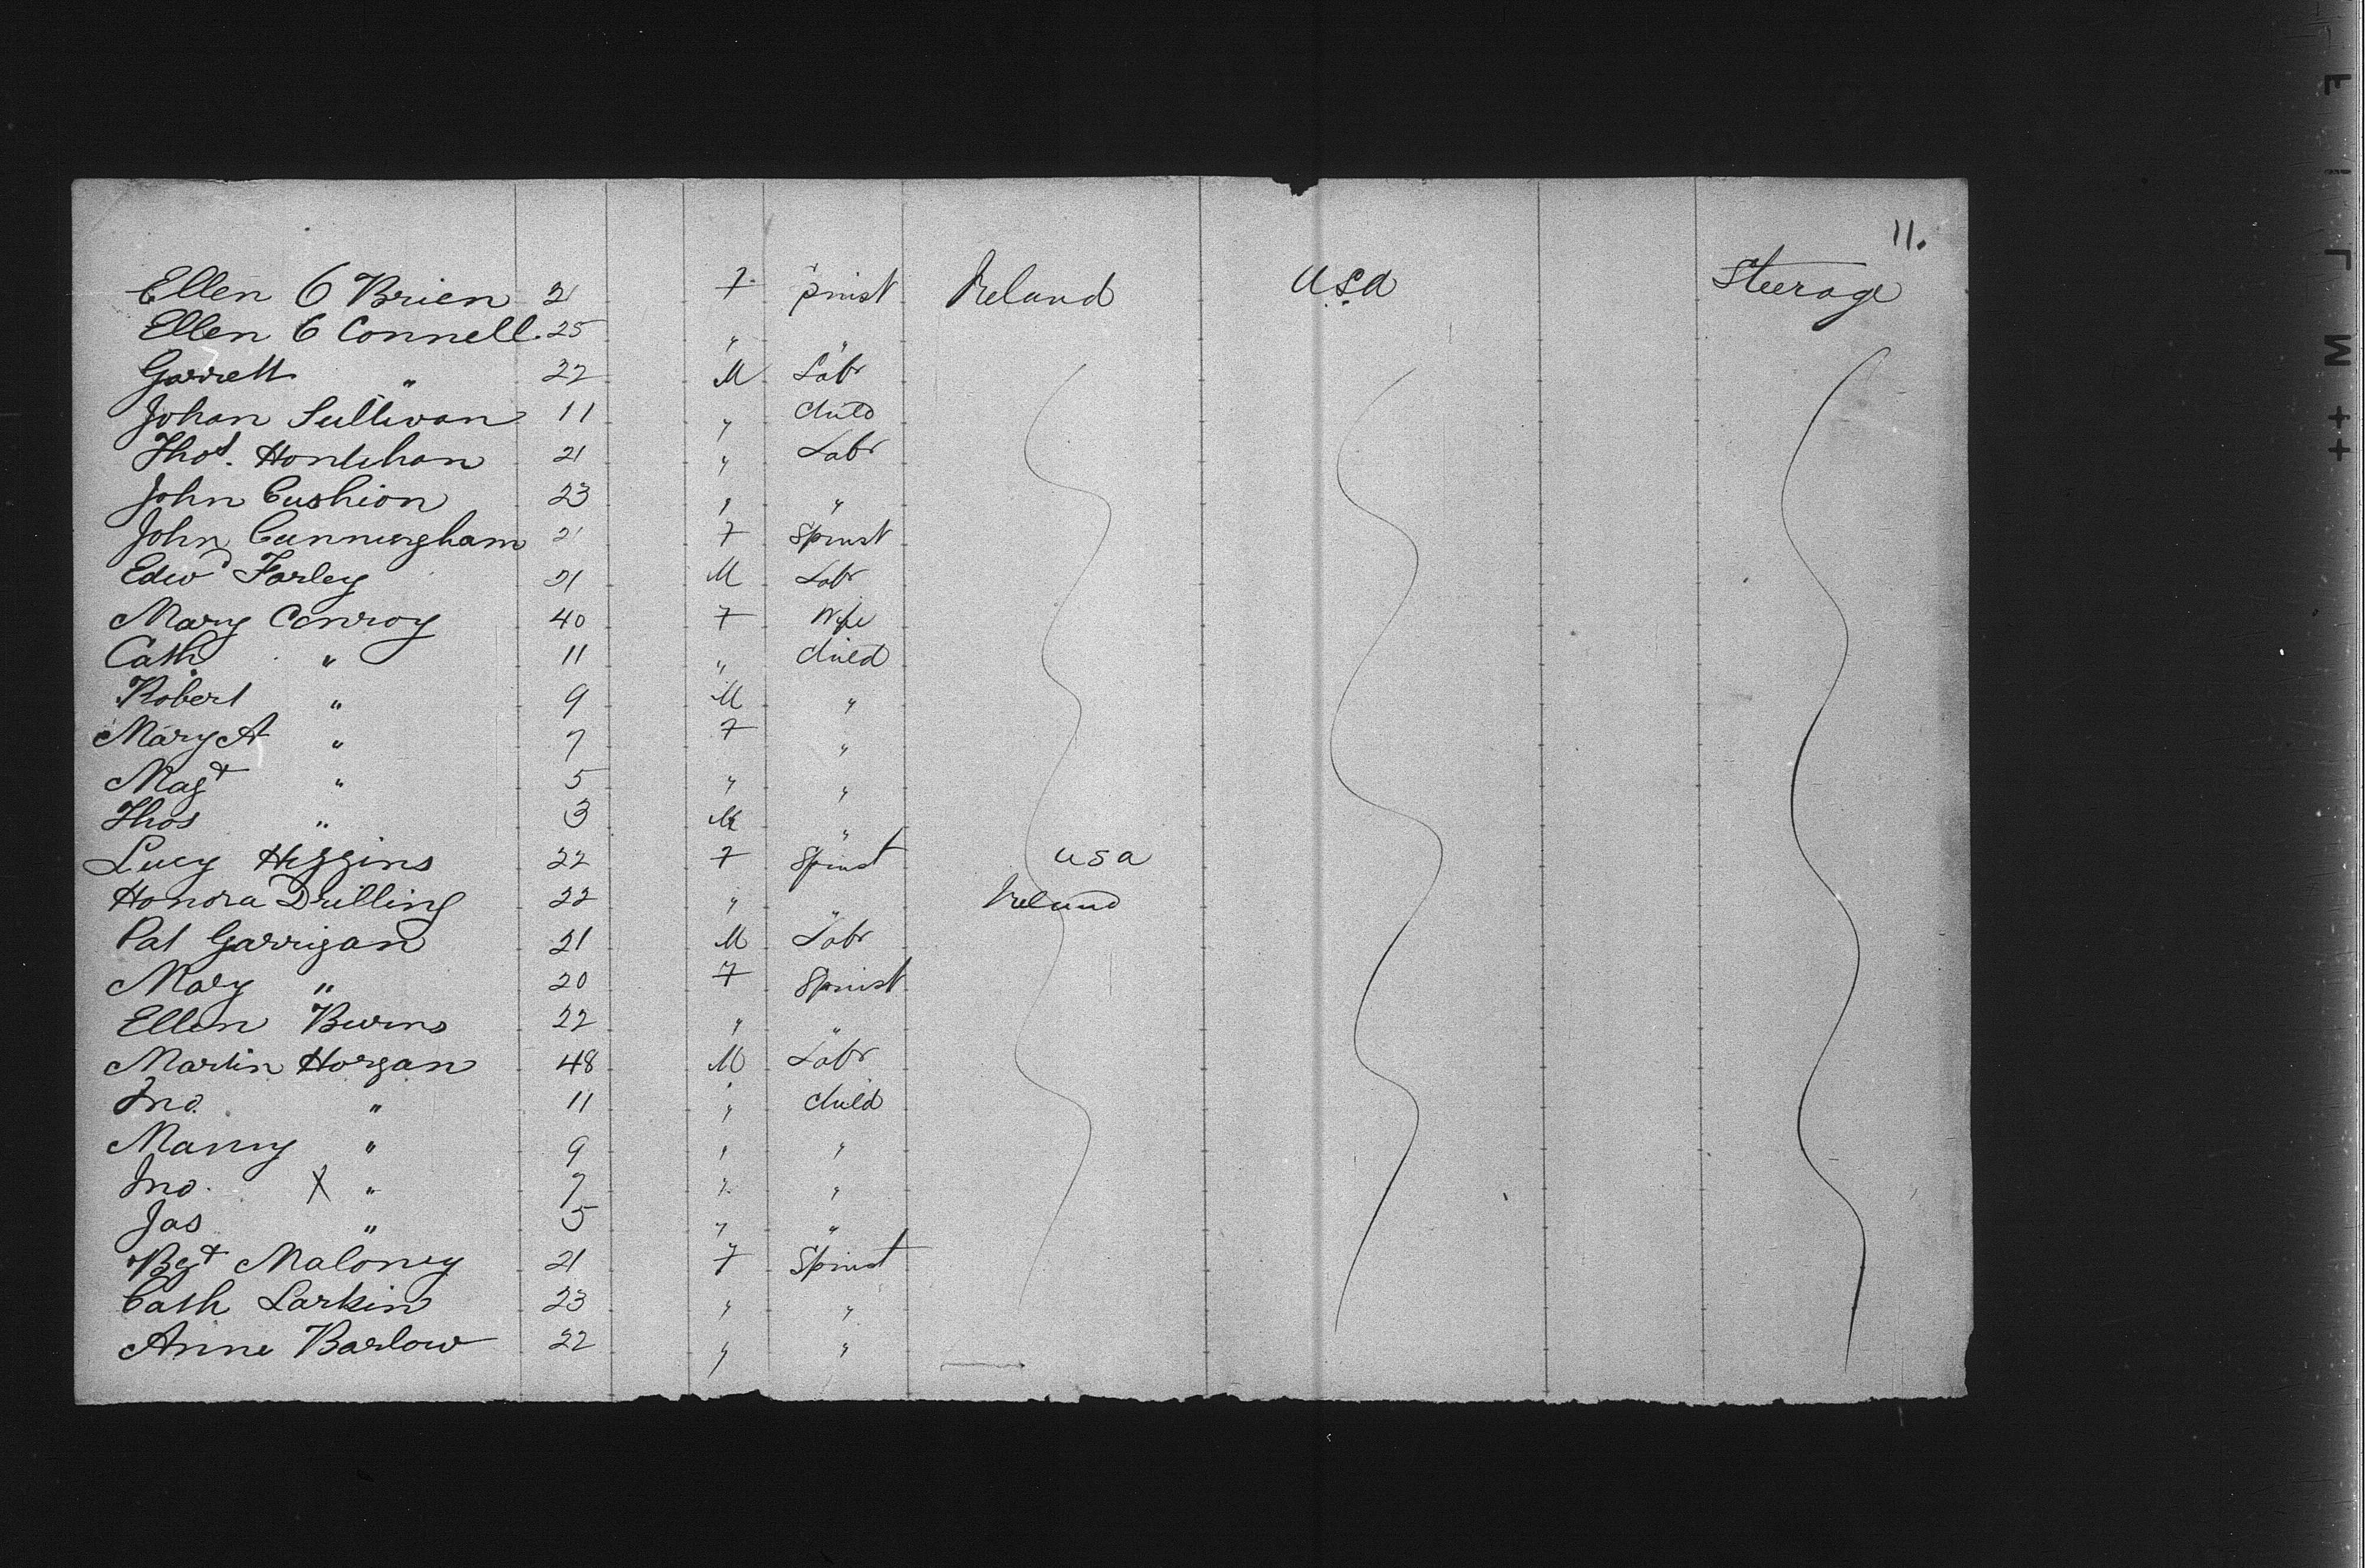 11.
Ellen O Brien 21 F Spinst Ireland USA Steerage
Ellen O Connell 25 " "
Garrett " 22 M Labr
Johan Sullivan 11 " Child
Thos. Honlihan 21 " Labr
John Cushion 23 " "
John Cunningham 21 F Spinst
Edwd Farley 21 M Labr
Mary Conroy 40 F Wife
Cath " 11 " Child
Robert " 9 M "
Mary A " 7 F "
Magt " 5 " "
Thos " 3 M "
Lucy Higgins 22 F Spinst USA
Honora Drilling 22 " " Ireland
Pat Garrigan 21 M Labr
Mary " 20 F Spinst
Ellen Burns 22 " "
Martin Horgan 48 M Labr
Jno. " 11 " Child
Manny " 9 " "
Jno. X " 7 " "
Jas " 5 " "
Bgt Maloney 21 F Spinst
Cath Larkin 23 " "
Anne Barlow 22 " "
FILM ++